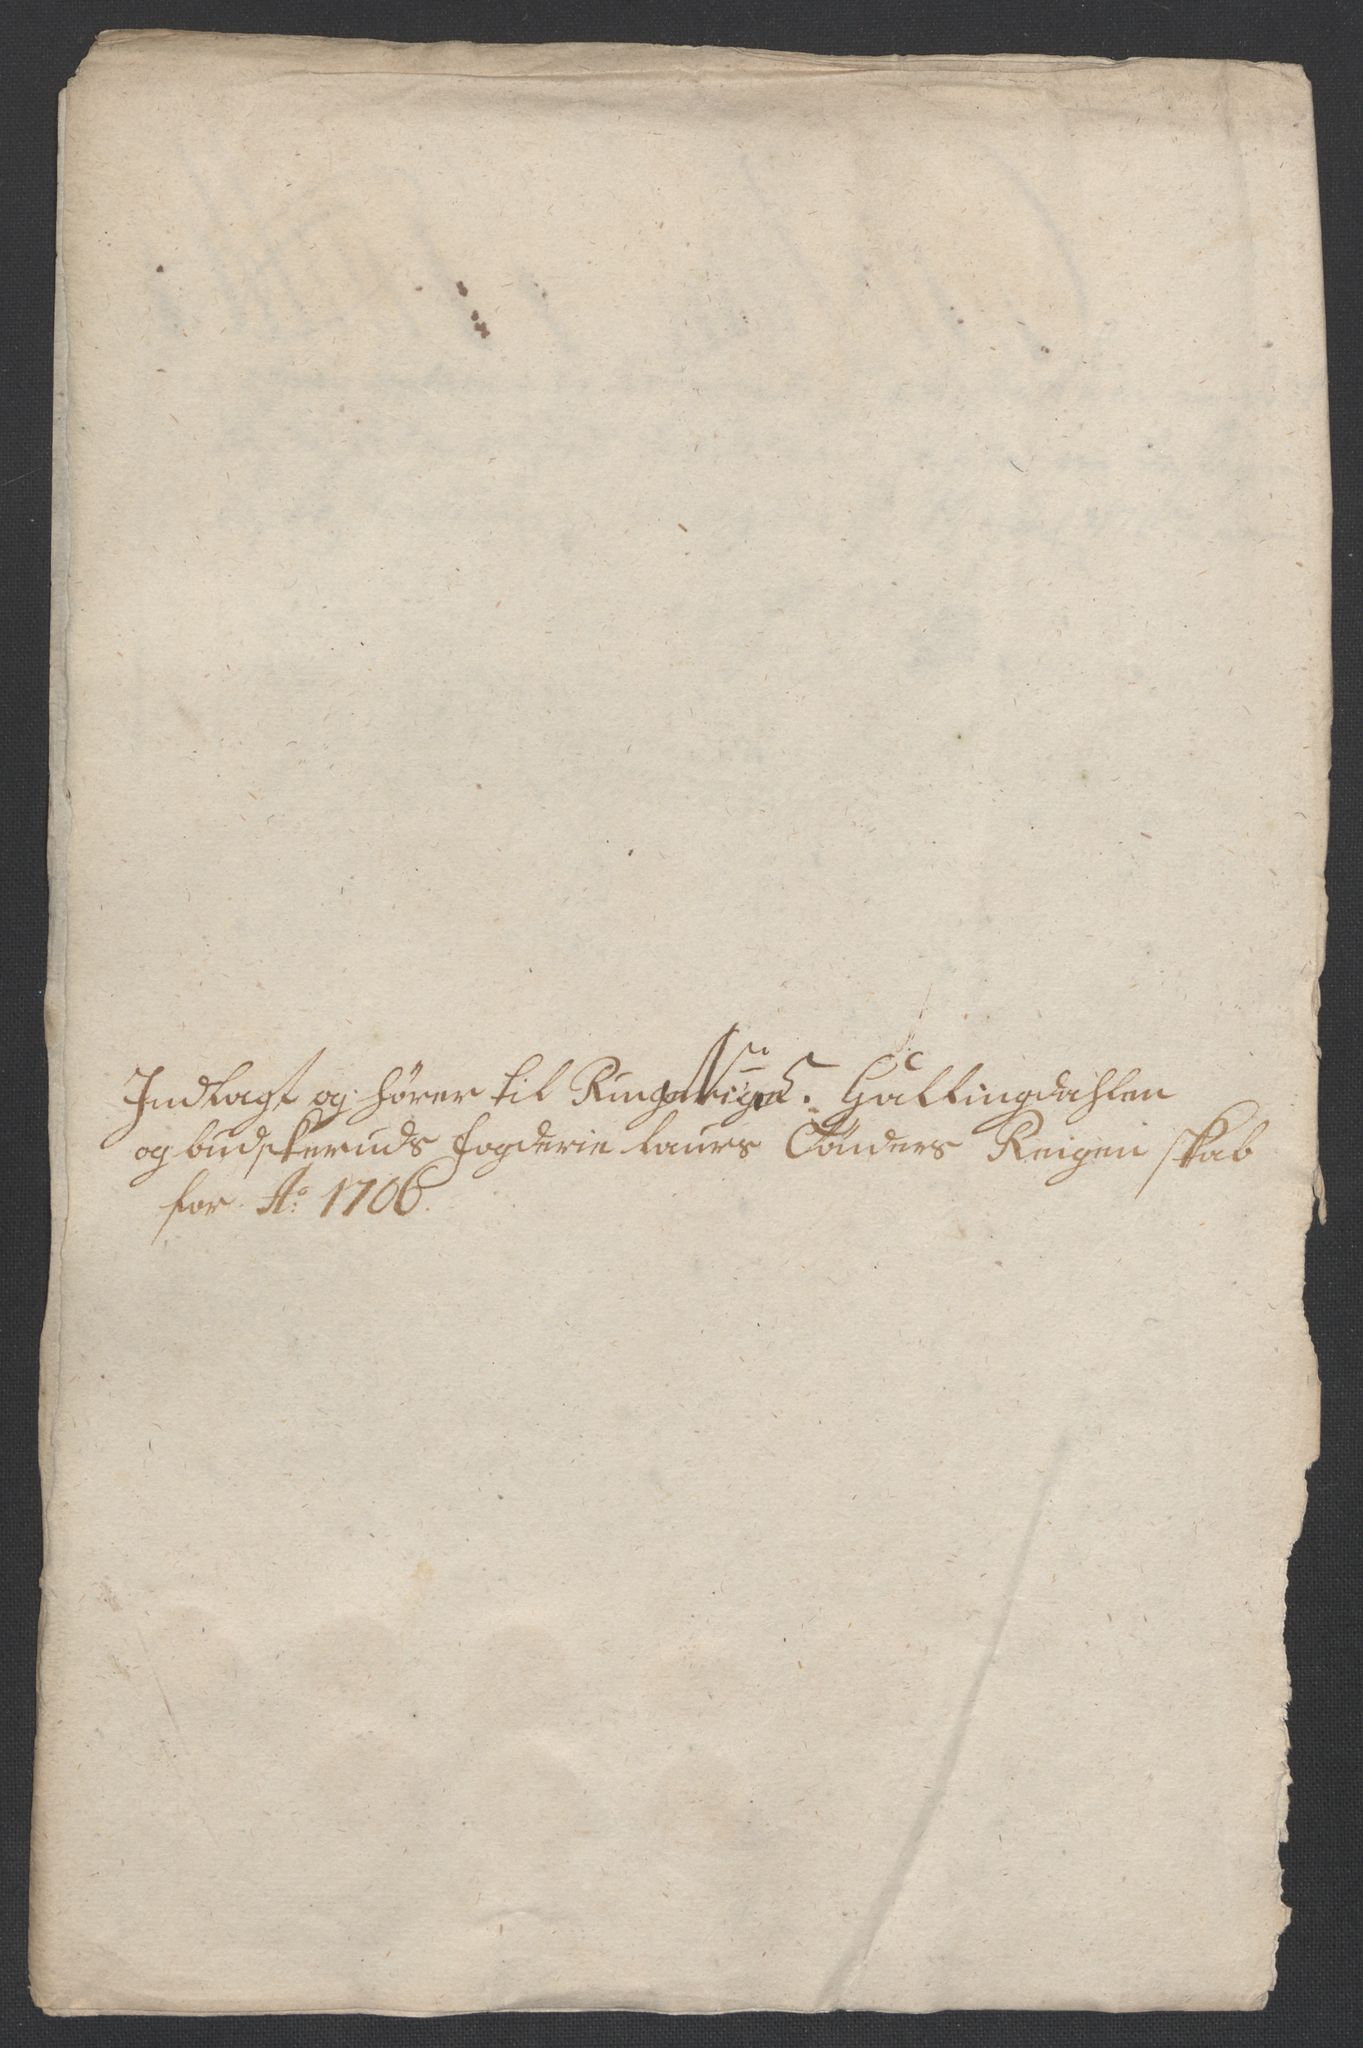 Indlagt og hører til Ringerige. Hallingdahlen
og budskeruds fogderie Laurs Tønders Reigenskab
for Ao: 1706.